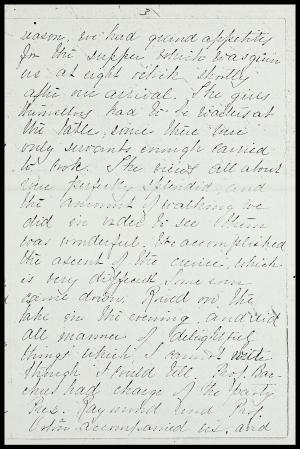 3
season, we had grand appetites
for the supper which was given
us at eight o'clock shortly
after our arrival. The girls
themselves had to be waiters at
the table, since there were
only servants enough carried
to cook. The views all about
were perfectly splendid, and
the amount of walking we
did in order to see them
was wonderful. We accomplished
the ascent of the which
is very difficult some even
came down. Rowed on the
lake in the evening and did
all manner of delightful
things which I cannot write
though I could tell. Prof. Bac-
khus had charge of the party
Pres. Raymond and Prof.
Orton accompanied us, and